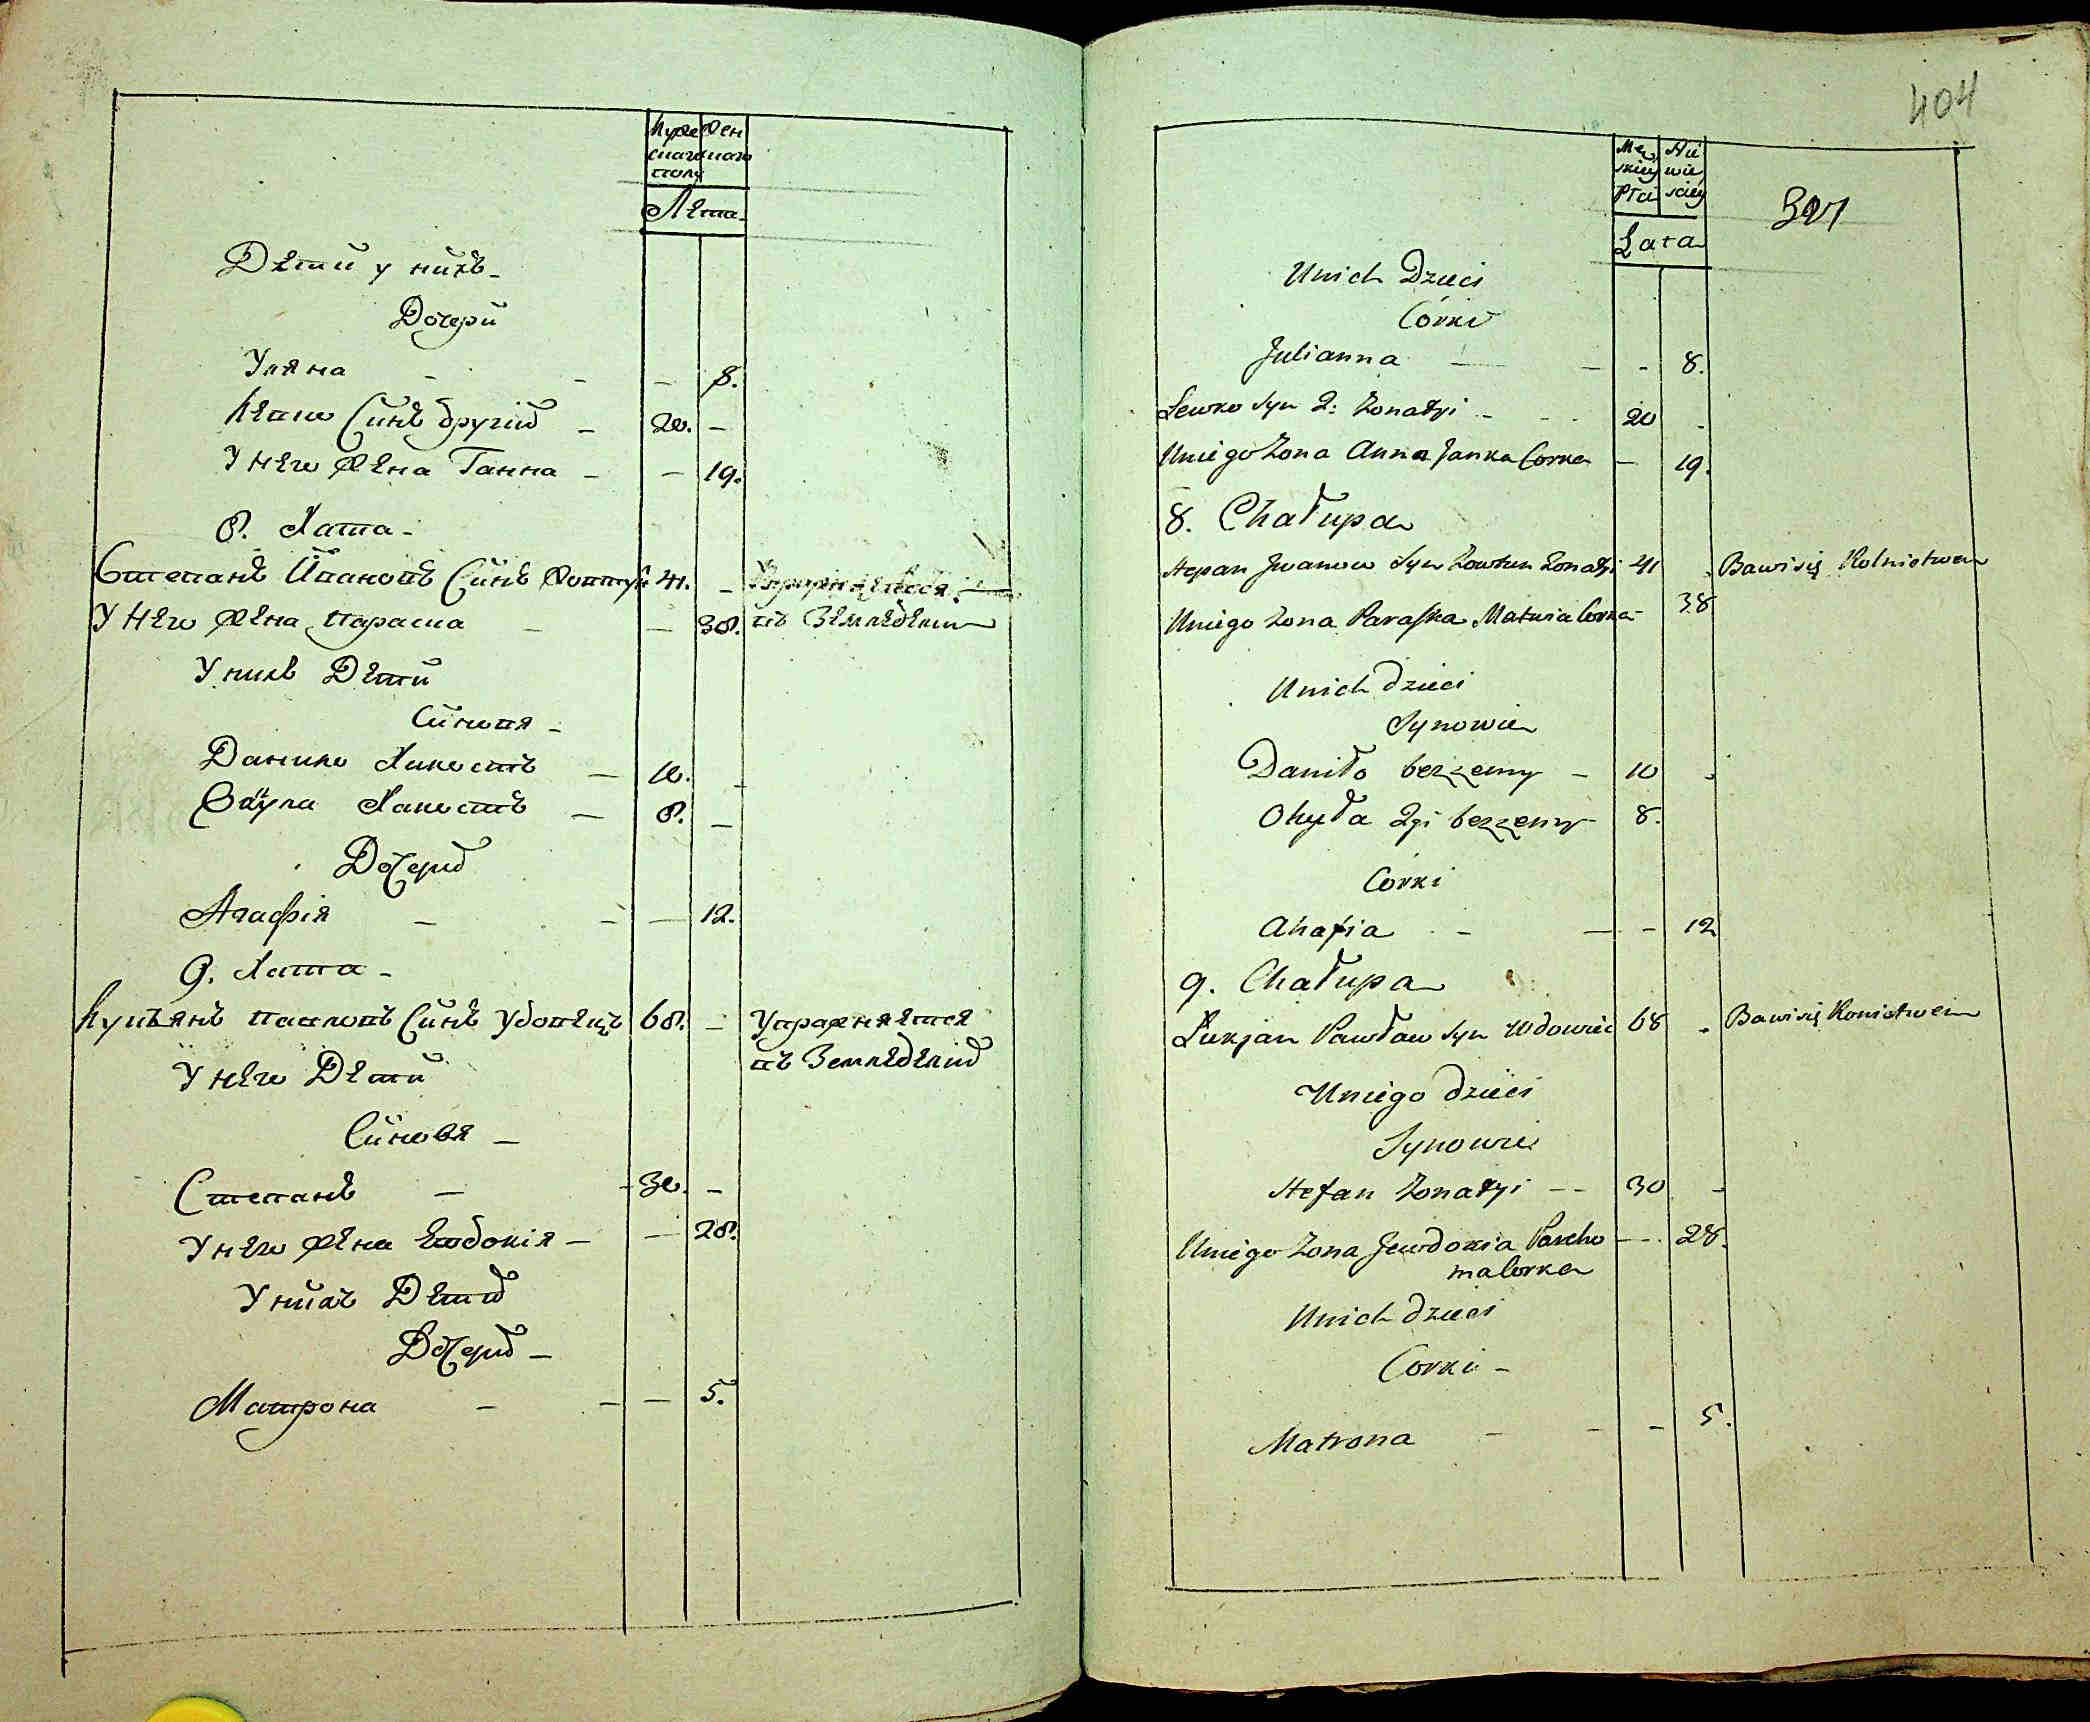 Муже Жен
скаго наго
полу
Лѣта
Дѣтй у нихъ
Дочерй
Уляна - - - 8.
Левко Сынъ другій - 20. -
У Него Жена Ганна - - 19.
8. Хата
Степанъ Ивановъ Сынъ Жовтун 41. - Упражняется
У Него Жена Параска - - 38. въ Земледелии
У нихъ Дети
Синовя -
Данило Холостъ - 10. -
Холостъ - 8. -
Дочерй
Агафія - - - 12.
9. Хата -
Лукъянъ Павловъ Сынъ Удовецъ 68. - Упражняется
въ Земледелий
У него Дети
Синовя -
Степанъ - - 30. -
У него Жена Евдокія - - 28.
У нихъ Детй
Дочерй -
Матрона - - - 5.
404
Mę Nie
skiey wie
Płci sciey
321
Lata
Unich Dzieci
Córki
Julianna - - - 8.
Lewko Syn 2: Zonatyi - - 20 -
Uniego Zona Anna Janka Corka - 19.
8. Chałupa
Stepan Jwanow Syn Zowtun Zonatyi 41 - Bawisię Rolnictwem
Uniego Zona Paraska Matwia Corka - 38
Unich Dzieci
Synowie
Daniło bezzenny - 10 -
Ohyła 2gi bezzenny - 8.
Córki
Ahafia - - - 12
9. Chałupa
Łukjan Pawław Syn Wdowiec 68 - Bawisię Ronictwem
Uniego Dzieci
Synowie
Stefan Zonatyi - - 30 -
Uniego Zona Jewdokia Parcho - - 28.
ma Corka
Unich Dzieci
Corki -
Matrona - - - 5.